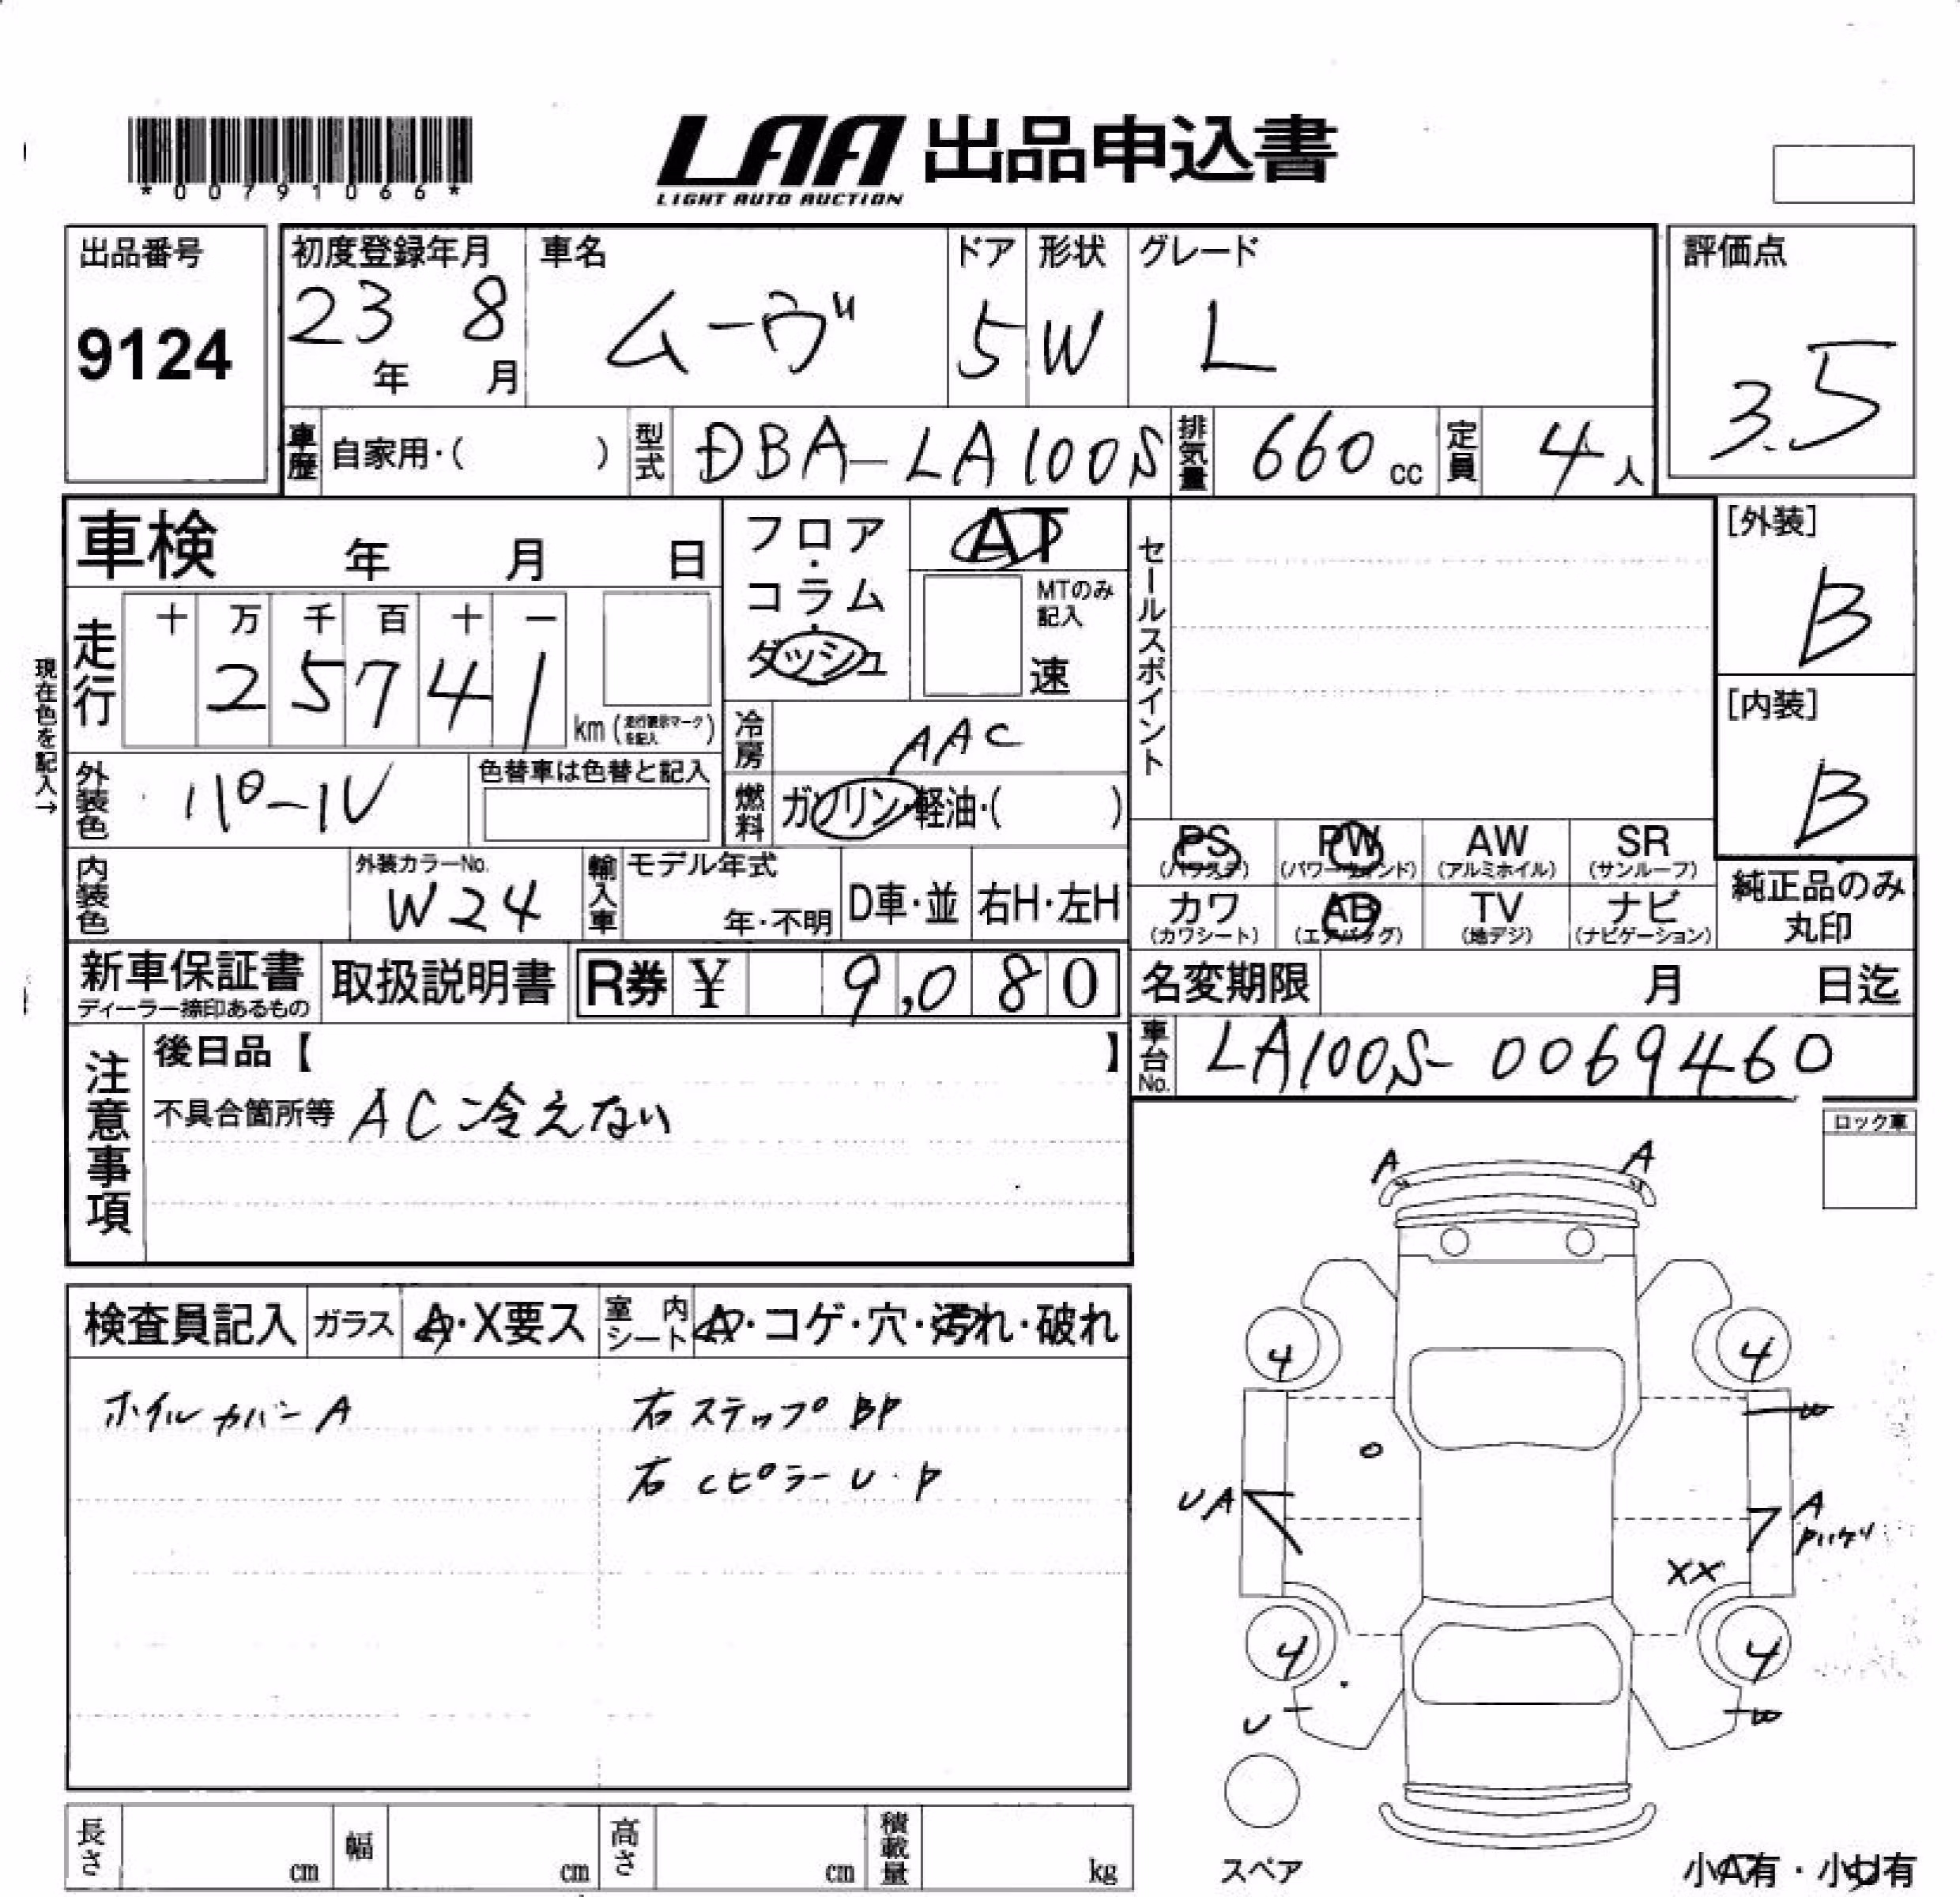 *00791066*
LAA 出品申込書
LIGHT AUTO AUCTION
出品番号
9124
初度登録年月
23 8
年 月
車名
ムーヴ
ドア
5
形状
W
グレード
L
評価点
3.5
車歴 自家用・( )
型式 DBA-LA100S
排気量 660 cc
定員 4 人
車検 年 月 日
フロア・コラム・ダッシュ
AT
MTのみ記入
速
セールスポイント
[外装]
B
[内装]
B
現在色を記入→
走行
十 万 千 百 十 一
2 5 7 4 1
km (走行表示マークを記入)
冷房 AAC
燃料 ガソリン・軽油・( )
外装色 パールV
色替車は色替と記入
PS (パワステ) PW (パワーウインド) AW (アルミホイル) SR (サンルーフ)
カワ (カワシート) AB (エアバッグ) TV (地デジ) ナビ (ナビゲーション)
純正品のみ
丸印
内装色
外装カラーNo.
W24
輸入車
モデル年式
年・不明
D車・並
右H・左H
新車保証書
ディーラー捺印あるもの
取扱説明書
R券 ¥ 9,080
名変期限 月 日迄
車台No. LA100S-0069460
注意事項
後日品【 】
不具合箇所等 AC冷えない
ロック車
検査員記入 ガラス A・X要ス 室内シート A・コゲ・穴・汚れ・破れ
ホイルカバーA
右ステップBP
右CピラーU・P
A A
4 4
W
UA
A
Pハゲ
XX
4 4
U W
スペア
小A有・小U有
長さ cm 幅 cm 高さ cm 積載量 kg